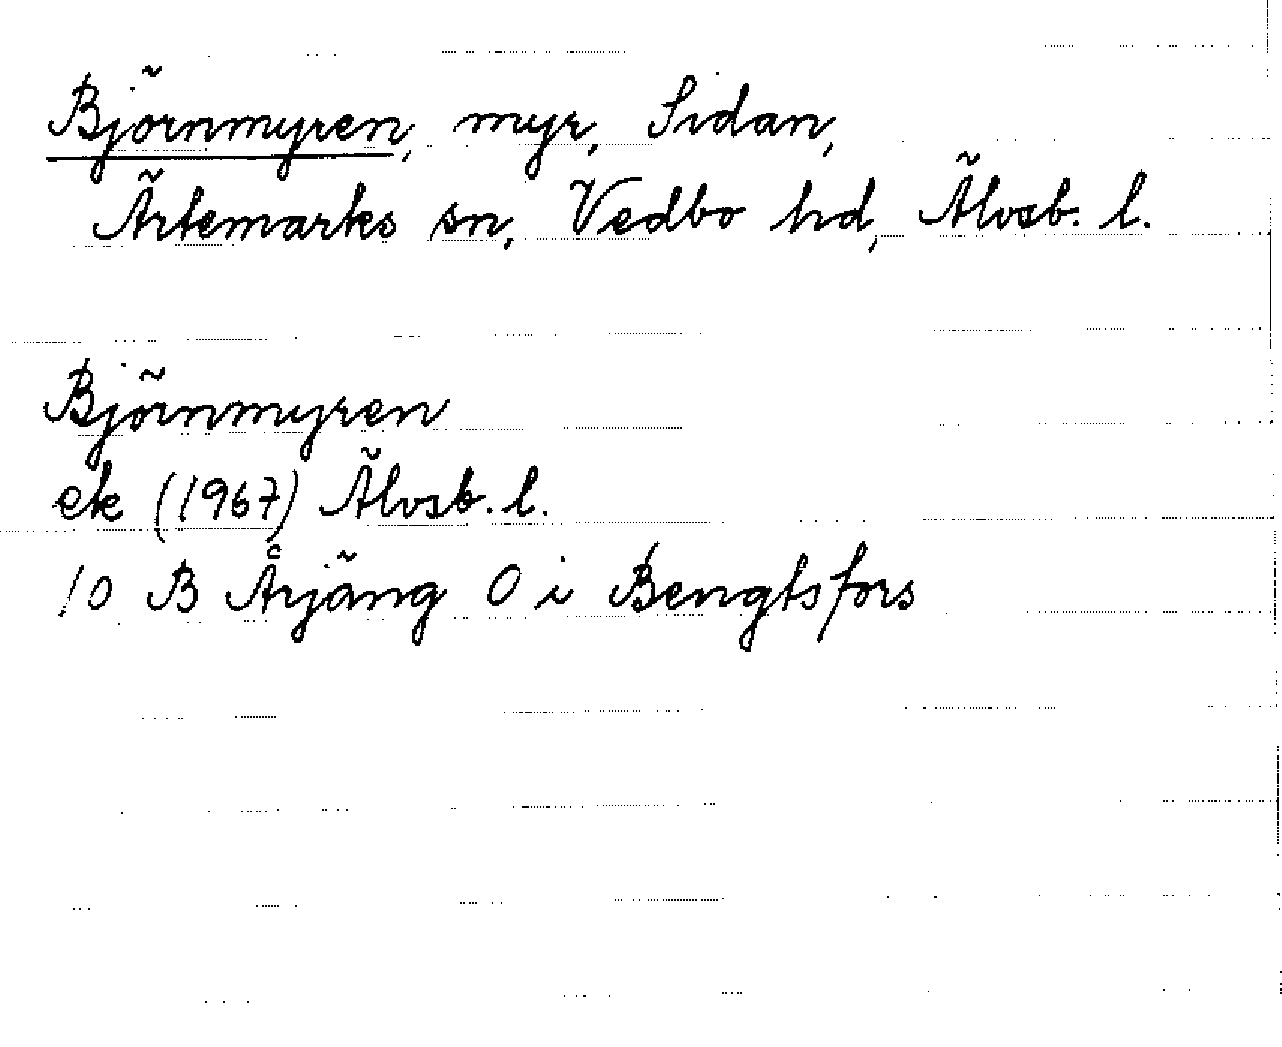 Björnmyren, myr, Sidan,
Ärtemarks sn, Vedbo hd, Älvsb. l.
Björnmyren
ek (1967) Älvsb. l.
10 B Årjäng O i Bengtsfors